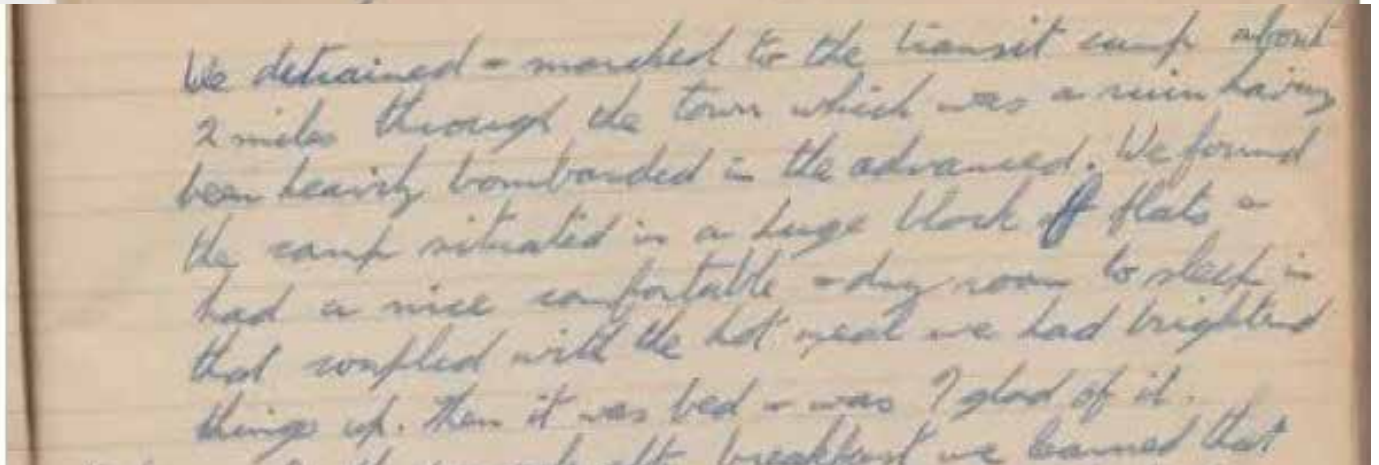 We detrained - marched to the transit camp about
2 miles through the town which was a ruin having
been heavily bombarded in the advanced. We found
the camp situated in a huge block of flats -
had a nice comfortable - dry room to sleep in
that coupled with the hot meal we had brightend
things up. Then it was bed - was I glad of it.
breakfast we learned that